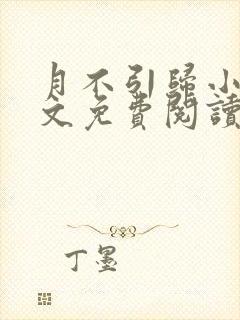 月不引歸小
文免費閱讀
丁墨